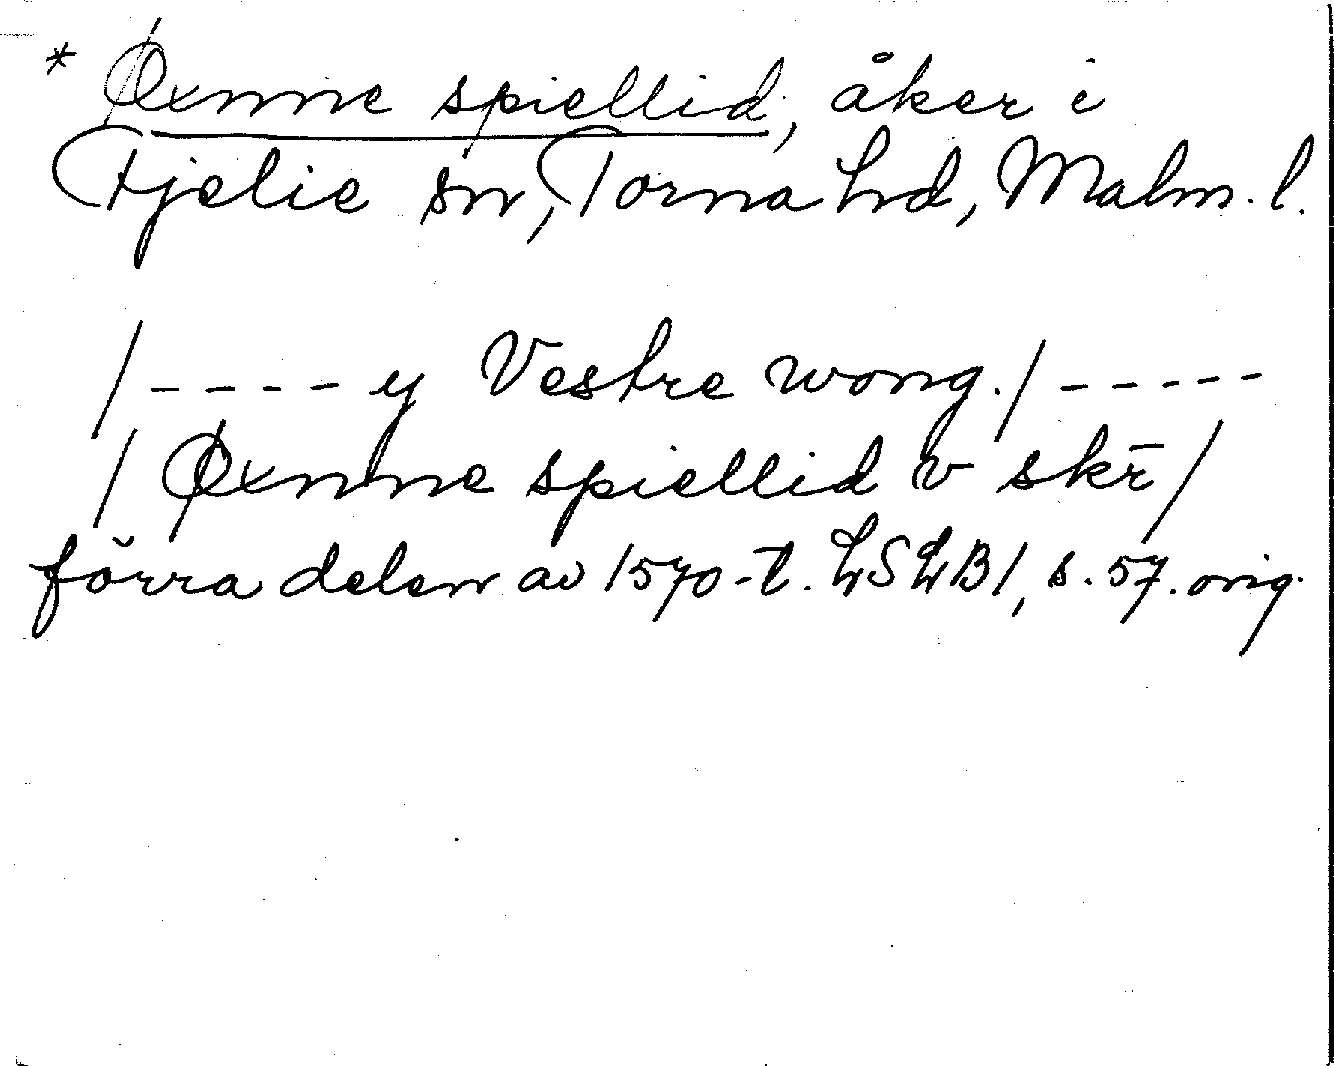 * Øxnne spiellid, åker i
Fjelie sn, Torna hd, Malm. l.
/---- y Vestre wong./-----
/ Øxnne spiellid v skr̄/
förra delen av 1570-t. LSLB1, s. 57. orig.